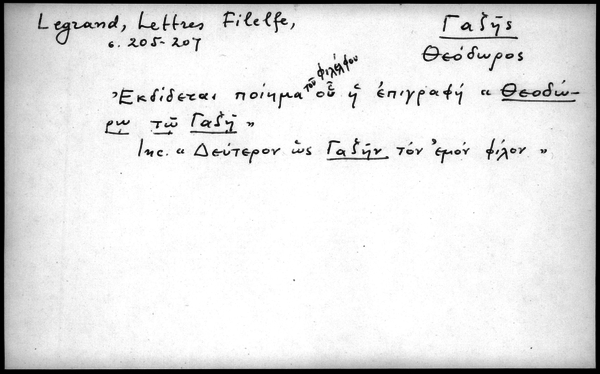 Legrand, Lettres Filelfe,
σ. 205-207
Γαζῆς
Θεόδωρος
Ἐκδίδεται ποίημα τοῦ Φιλέλφου οὗ ἡ ἐπιγραφή « Θεοδώ-
ρῳ τῷ Γαζῇ »
Inc. « Δεύτερον ὡς Γαζῆν τὸν ἐμόν φίλον »